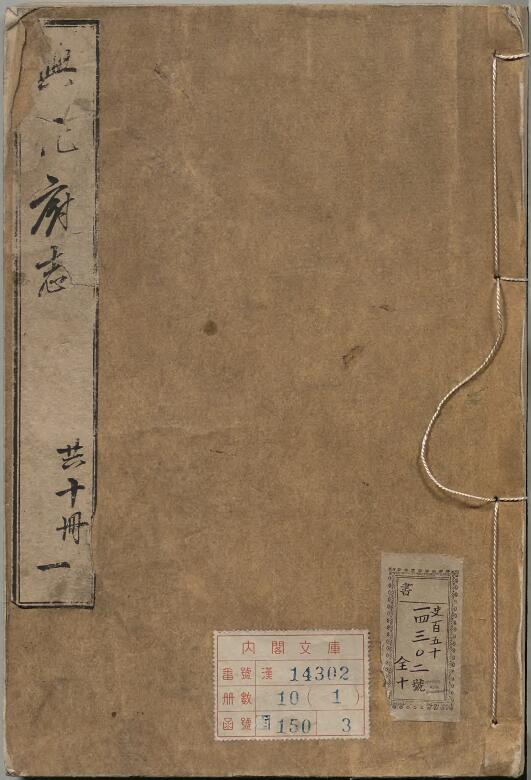 興化府志
共十冊 一
書
史百五十
一四三〇二號
全十
内閣文庫
番號 漢 14302
冊數 10(1)
函號 150 3